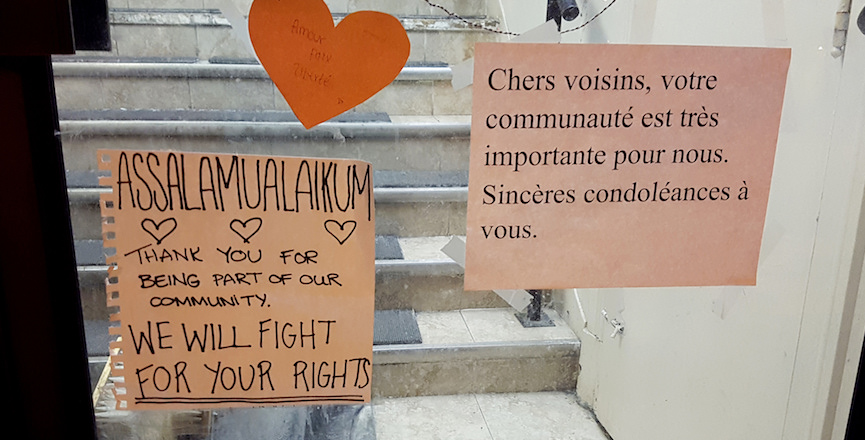 Amour
Paix
Chers voisins, votre
communauté est très
importante pour nous.
Sincères condoléances à
vous.
ASSALAMUALAIKUM
THANK YOU FOR
BEING PART OF OUR
COMMUNITY.
WE WILL FIGHT
FOR YOUR RIGHTS